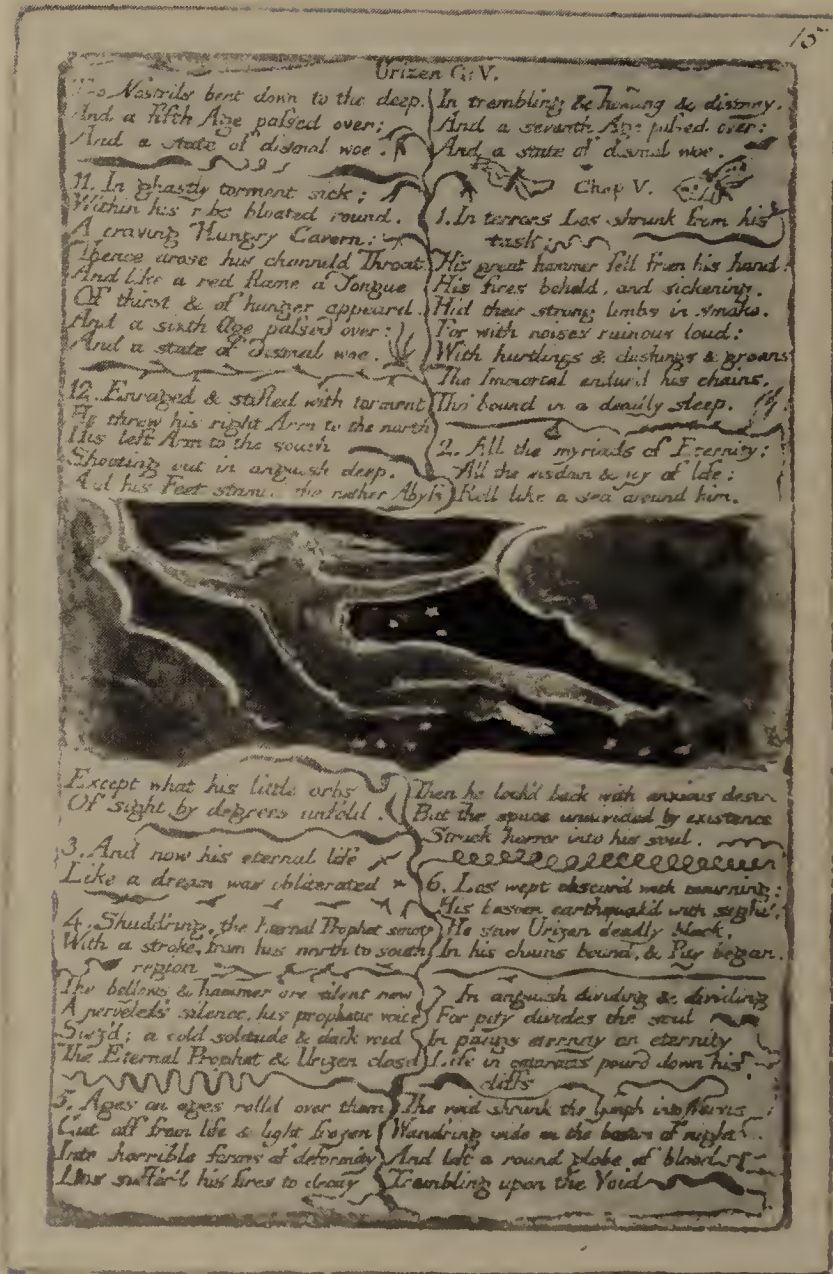 15
Urizen C: V.
Two Nostrils bent down to the deep.
And a fifth Age passed over;
And a state of dismal woe.
11. In ghastly torment sick;
Within his ribs bloated round.
A craving Hungry Cavern;
Thence arose his channeld Throat
And like a red flame a Tongue
Of thirst & of hunger appeard.
And a sixth Age passed over:
And a state of dismal woe.
12. Enraged & stifled with torment
He threw his right Arm to the north
His left Arm to the south
Shooting out in anguish deep.
And his Feet stampd the nether Abyss
In trembling & howling & dismay.
And a seventh Age passed over:
And a state of dismal woe.
Chap V.
1. In terrors Los shrunk from his
task:
His great hammer fell from his hand:
His fires beheld, and sickening,
Hid their strong limbs in smoke.
For with noises ruinous loud:
With hurtlings & clashings & groans
The Immortal endur'd his chains,
Tho' bound in a deadly sleep.
2. All the myriads of Eternity:
All the wisdom & joy of life:
Roll like a sea around him.
Except what his little orbs
Of sight by degrees unfold.
3. And now his eternal life
Like a dream was obliterated
4. Shudd'ring, the Eternal Prophet smote
With a stroke, from his north to south
region
The bellows & hammer are silent now
A nerveless silence, his prophetic voice
Siez'd; a cold solitude & dark void
The Eternal Prophet & Urizen clos'd
5. Ages on ages rolld over them
Cut off from life & light frozen
Into horrible forms of deformity
Los suffer'd his fires to decay
Then he look'd back with anxious desire
But the space undivided by existence
Struck horror into his soul.
6. Los wept obscur'd with mourning:
His bosom earthquak'd with sighs:
He saw Urizen deadly black,
In his chains bound, & Pity began.
7. In anguish dividing & dividing
For pity divides the soul
In pangs eternity on eternity
Life in cataracts pourd down his
cliffs
The void shrunk the lymph into Nerves
Wandring wide on the bosom of night
And left a round globe of blood
Trembling upon the Void